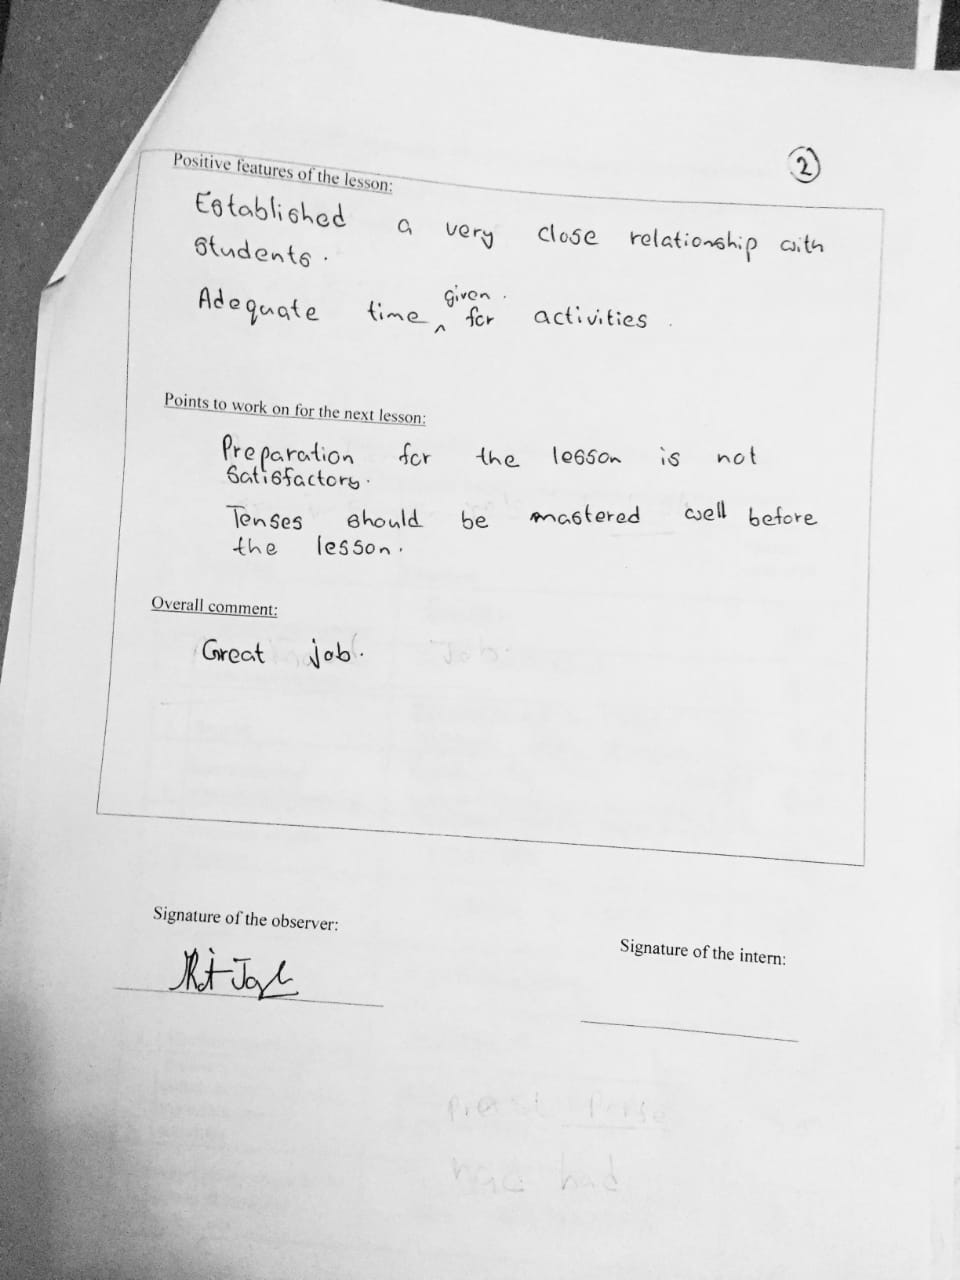 2
Positive features of the lesson:
Established a very close relationship with
students.
Adequate time given for activities.
Points to work on for the next lesson:
Preparation for the lesson is not
satisfactory.
Tenses should be mastered well before
the lesson.
Overall comment:
Great job.
Signature of the observer:
Signature of the intern: